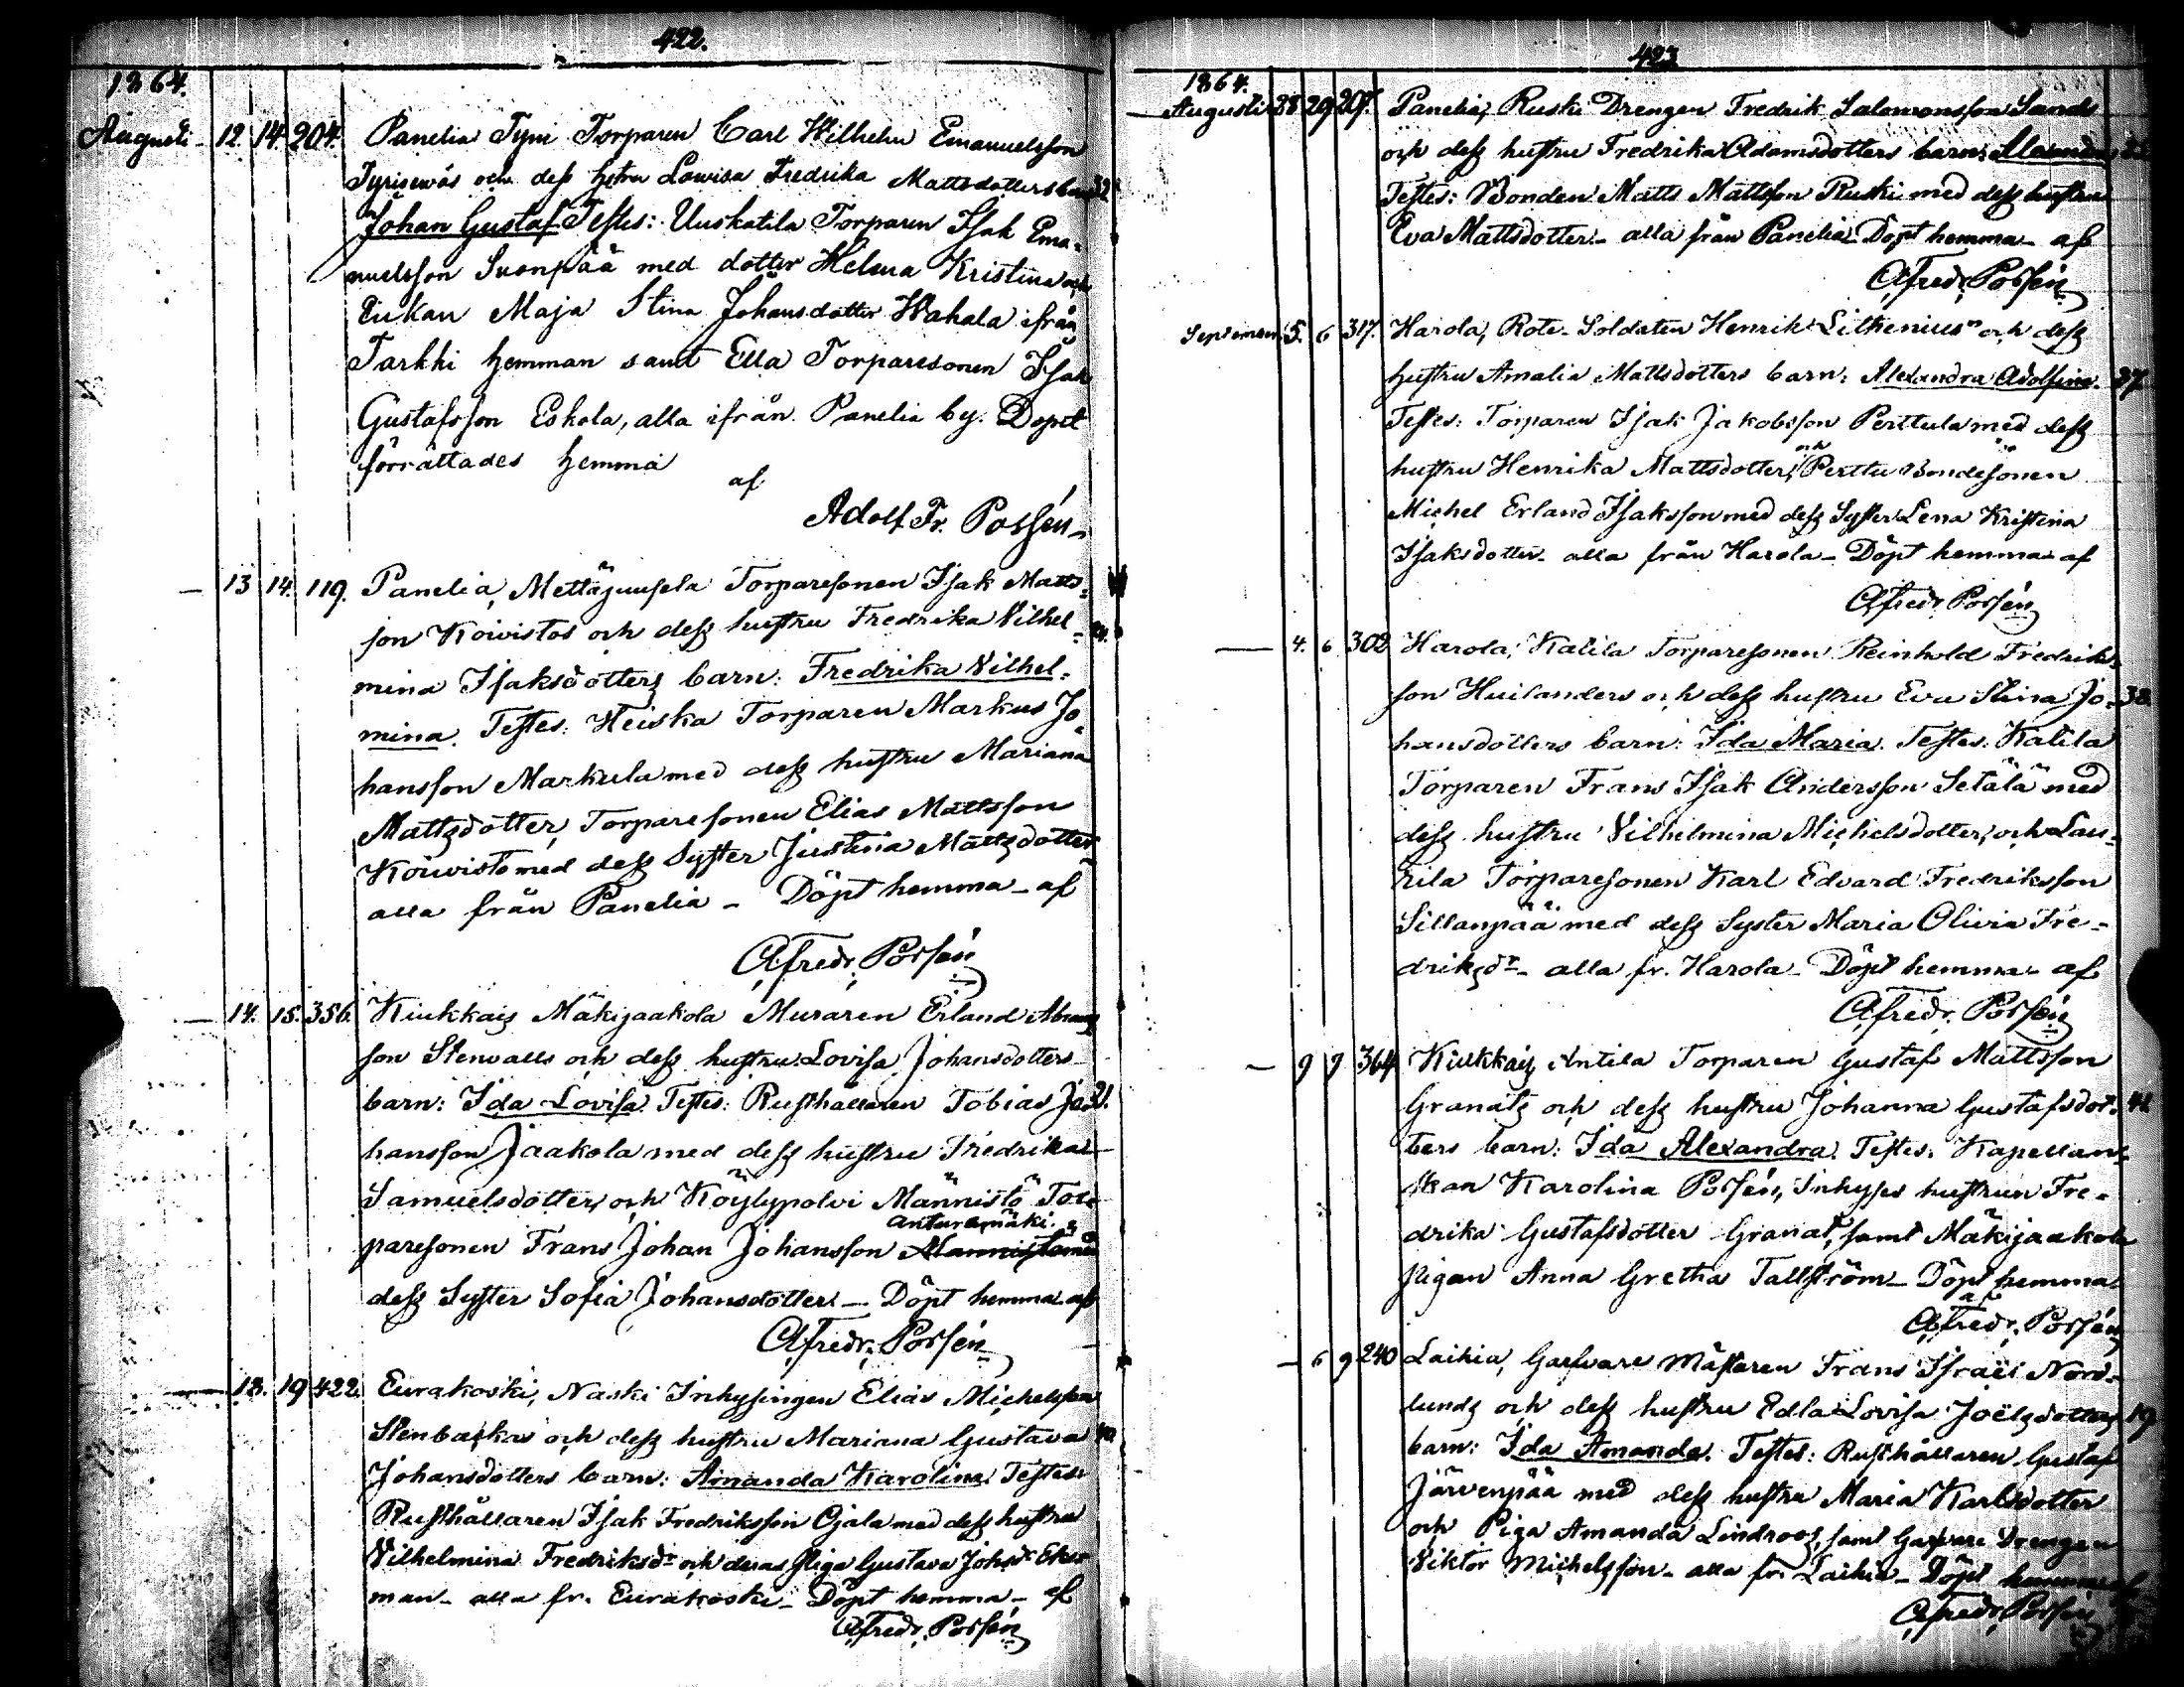 422.
1864.
Augusti 12. 14. 204. Panelia Tyni Torparen Carl Wilhelm Emanuelsson
och dess hstru Lowisa Fredrika Mattsdotters barn 32
Johan Gustaf Testes: Uuskatila Torparen Isak Ema-
nuelsson Suonpää med dotter Helena Kristina och
Enkan Maja Stina Johansdotter Wahala ifrån
Tarkki hemman samt Ella Torparesonen Isak
Gustafsson Eskola, alla ifrån Panelia by. Dopet
förrättades hemma
af
Adolf Fr. Possén
— 13 14. 119. Panelia, Torparesonen Isak Matts-
son Koivistos och dess hustru Fredrika Vilhel-
mina Isaksdotters barn: Fredrika Vilhel-
mina. Testes: Heiska Torparen Markus Jo-
hansson Markula med dess hustru Mariana
Mattsdotter, Torparesonen Elias Mattsson
Koivisto med dess Syster Justina Mattsdotter
alla från Panelia – Döpt hemma – af
A Fredr. Possén
— 14. 15. 356. Kiukkais Mäkijaakola Muraren Erland Abrams
son Stenvalls och dess hustru Lovisa Johansdotters
barn: Ida Lovisa. Testes: Rusthållaren Tobias Jo- 21.
hansson Jaakola med dess hustru Fredrika
Samuelsdotter, och Köylypolvi Männistö Tor-
anturamäki
paresonen Frans Johan Johansson med
dess Syster Sofia Johansdotter. – Döpt hemma af
A Fredr. Possén
— 18. 19 422. Eurakoski, Naski Inhysingen Elias Michelsson
Stenbackas och dess hustru Mariana Gustava
Johansdotters barn: Amanda Karolina. Testes:
Rusthållaren Isak Fredriksson Ojala med dess hustru
Vilhelmina Fredriksdr och deras Piga Gustava Johsdr Ek-
man – alla fr. Eurakoski – Döpt hemma – af
A Fredr. Possén
423
1864.
Augusti 28 29 207. Panelia, Ruski Drengen Fredrik Salomonsson Sands
och dess hustru Fredrika Adamsdotters barn:
Testes: Bonden Matts Mattsson Ruski med dess hustru
Eva Mattsdotter – alla från Panelia – Döpt hemma – af
A Fredr. Possén
September 5. 6 317. Harola, Rote-Soldaten Henrik Lithenius och dess
hustru Amalia Mattsdotters barn: Alexandra Adolfina. 37
Testes: Torparen Isak Jakobsson Perttula med dess
hustru Henrika Mattsdotter, och Perttu Bondesonen
Michel Erland Isaksson med dess Syster Lena Kristina
Isaksdotter – alla från Harola – Döpt hemma af
A Fredr. Possén
— 4. 6 302 Harola, Katila Torparesonen Reinhold Fredriks-
son Huilanders och dess hustru Eva Stina Jo- 38.
hansdotters barn: Ida Maria. Testes: Katila
Torparen Frans Isak Andersson Setälä med
dess hustru Vilhelmina Michelsdotter, och Lau-
rila Torparesonen Karl Edvard Fredriksson
Sillanpää med dess Syster Maria Olivia Fre-
driksdr – alla fr. Harola – Döpt hemma – af
A Fredr. Possén
— 9 9 364 Kiukkais Antila Torparen Gustaf Mattsson
Granats och dess hustru Johanna Gustafsdot- 41
ters barn: Ida Alexandra. Testes: Kapellans-
skan Karolina Possén, Inhyses hustrun Fre-
drika Gustafsdotter Granat, samt Mäkijaakola
Pigan Anna Gretha Tallström – Döpt hemma
af
A Fredr. Possén
— 6 9 240 Laihia, Garfvare Mästaren Frans Israël Nord-
lunds och dess hustru Edla Lovisa Joëlsdotters 19
barn: Ida Amanda. Testes: Rusthållaren Gustaf
Järvenpää med dess hustru Maria Karlsdotter
och Piga Amanda Lindroos, samt Garfvare Drengen
Viktor Michelsson – alla fr. Laihia – Döpt hemma af
A Fredr. Possén